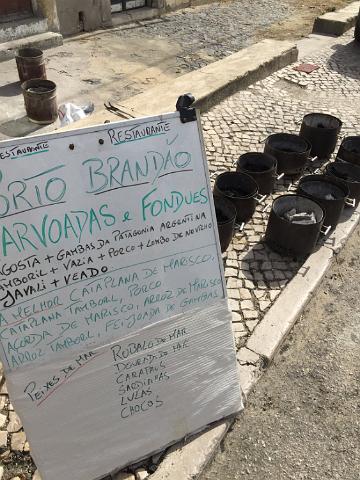 RESTAURANTE RESTAURANTE
BRANDÃO
ARVOADAS e FONDUES
AGOSTA + GAMBAS DA PATAGONIA ARGENTINA
TAMBORIL + VAZIA + PORCO + LOMBO DE NOVILHO
JAVALI + VEADO
A MELHOR CATAPLANA DE MARISCO,
CATAPLANA TAMBORIL, PORCO
AÇORDA DE MARISCO, ARROZ DE MARISCO
ARROZ TAMBORIL, FEIJOADA DE GAMBAS
PEIXES DE MAR
ROBALO DE MAR
DOURADO MAR
CARAPAUS
SARDINHAS
LULAS
CHOCOS